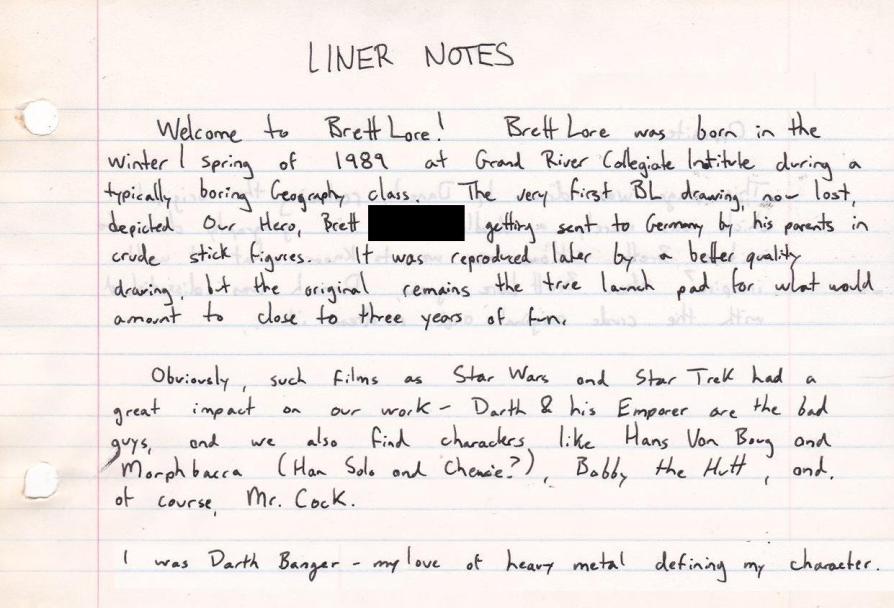 LINER NOTES
Welcome to Brett Lore! Brett Lore was born in the
winter / spring of 1989 at Grand River Collegiate Institute during a
typically boring Geography class. The very first BL drawing, now lost,
depicted Our Hero, Brett getting sent to Germany by his parents in
crude stick figures. It was reproduced later by a better quality
drawing, but the original remains the true launch pad for what would
amount to close to three years of fun.
Obviously, such films as Star Wars and Star Trek had a
great impact on our work - Darth & his Emporer are the bad
guys, and we also find characters like Hans Von Boug and
Morphbacca (Han Solo and Chewie?), Bobby the Hutt, and,
of course, Mr. Cock.
I was Darth Banger - my love of heavy metal defining my character.